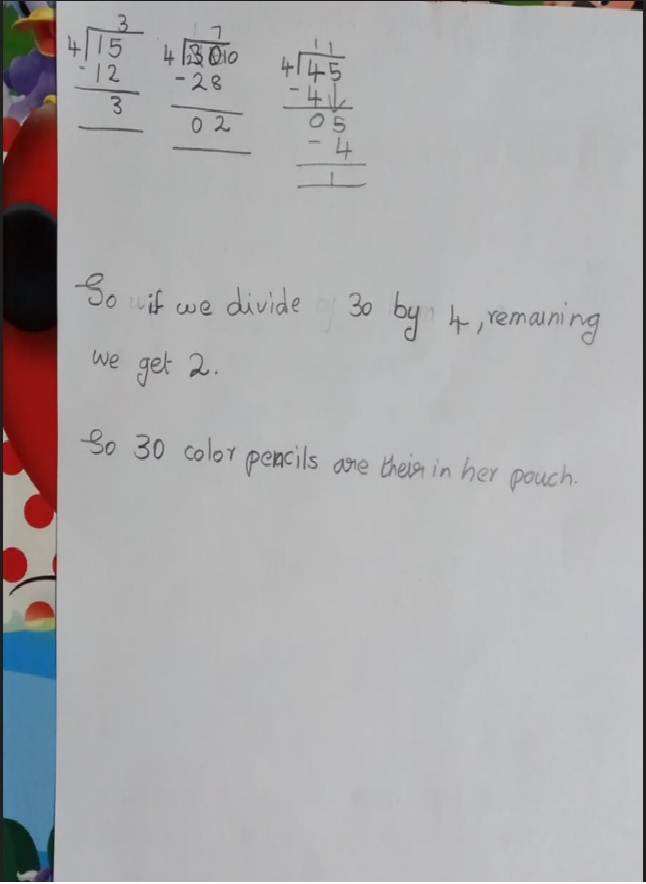 3
4 15
-12
3
17
4 30 10
-28
02
11
4 45
-4↓
05
-4
1
So if we divide 30 by 4, remaining
we get 2.
So 30 color pencils are their in her pouch.